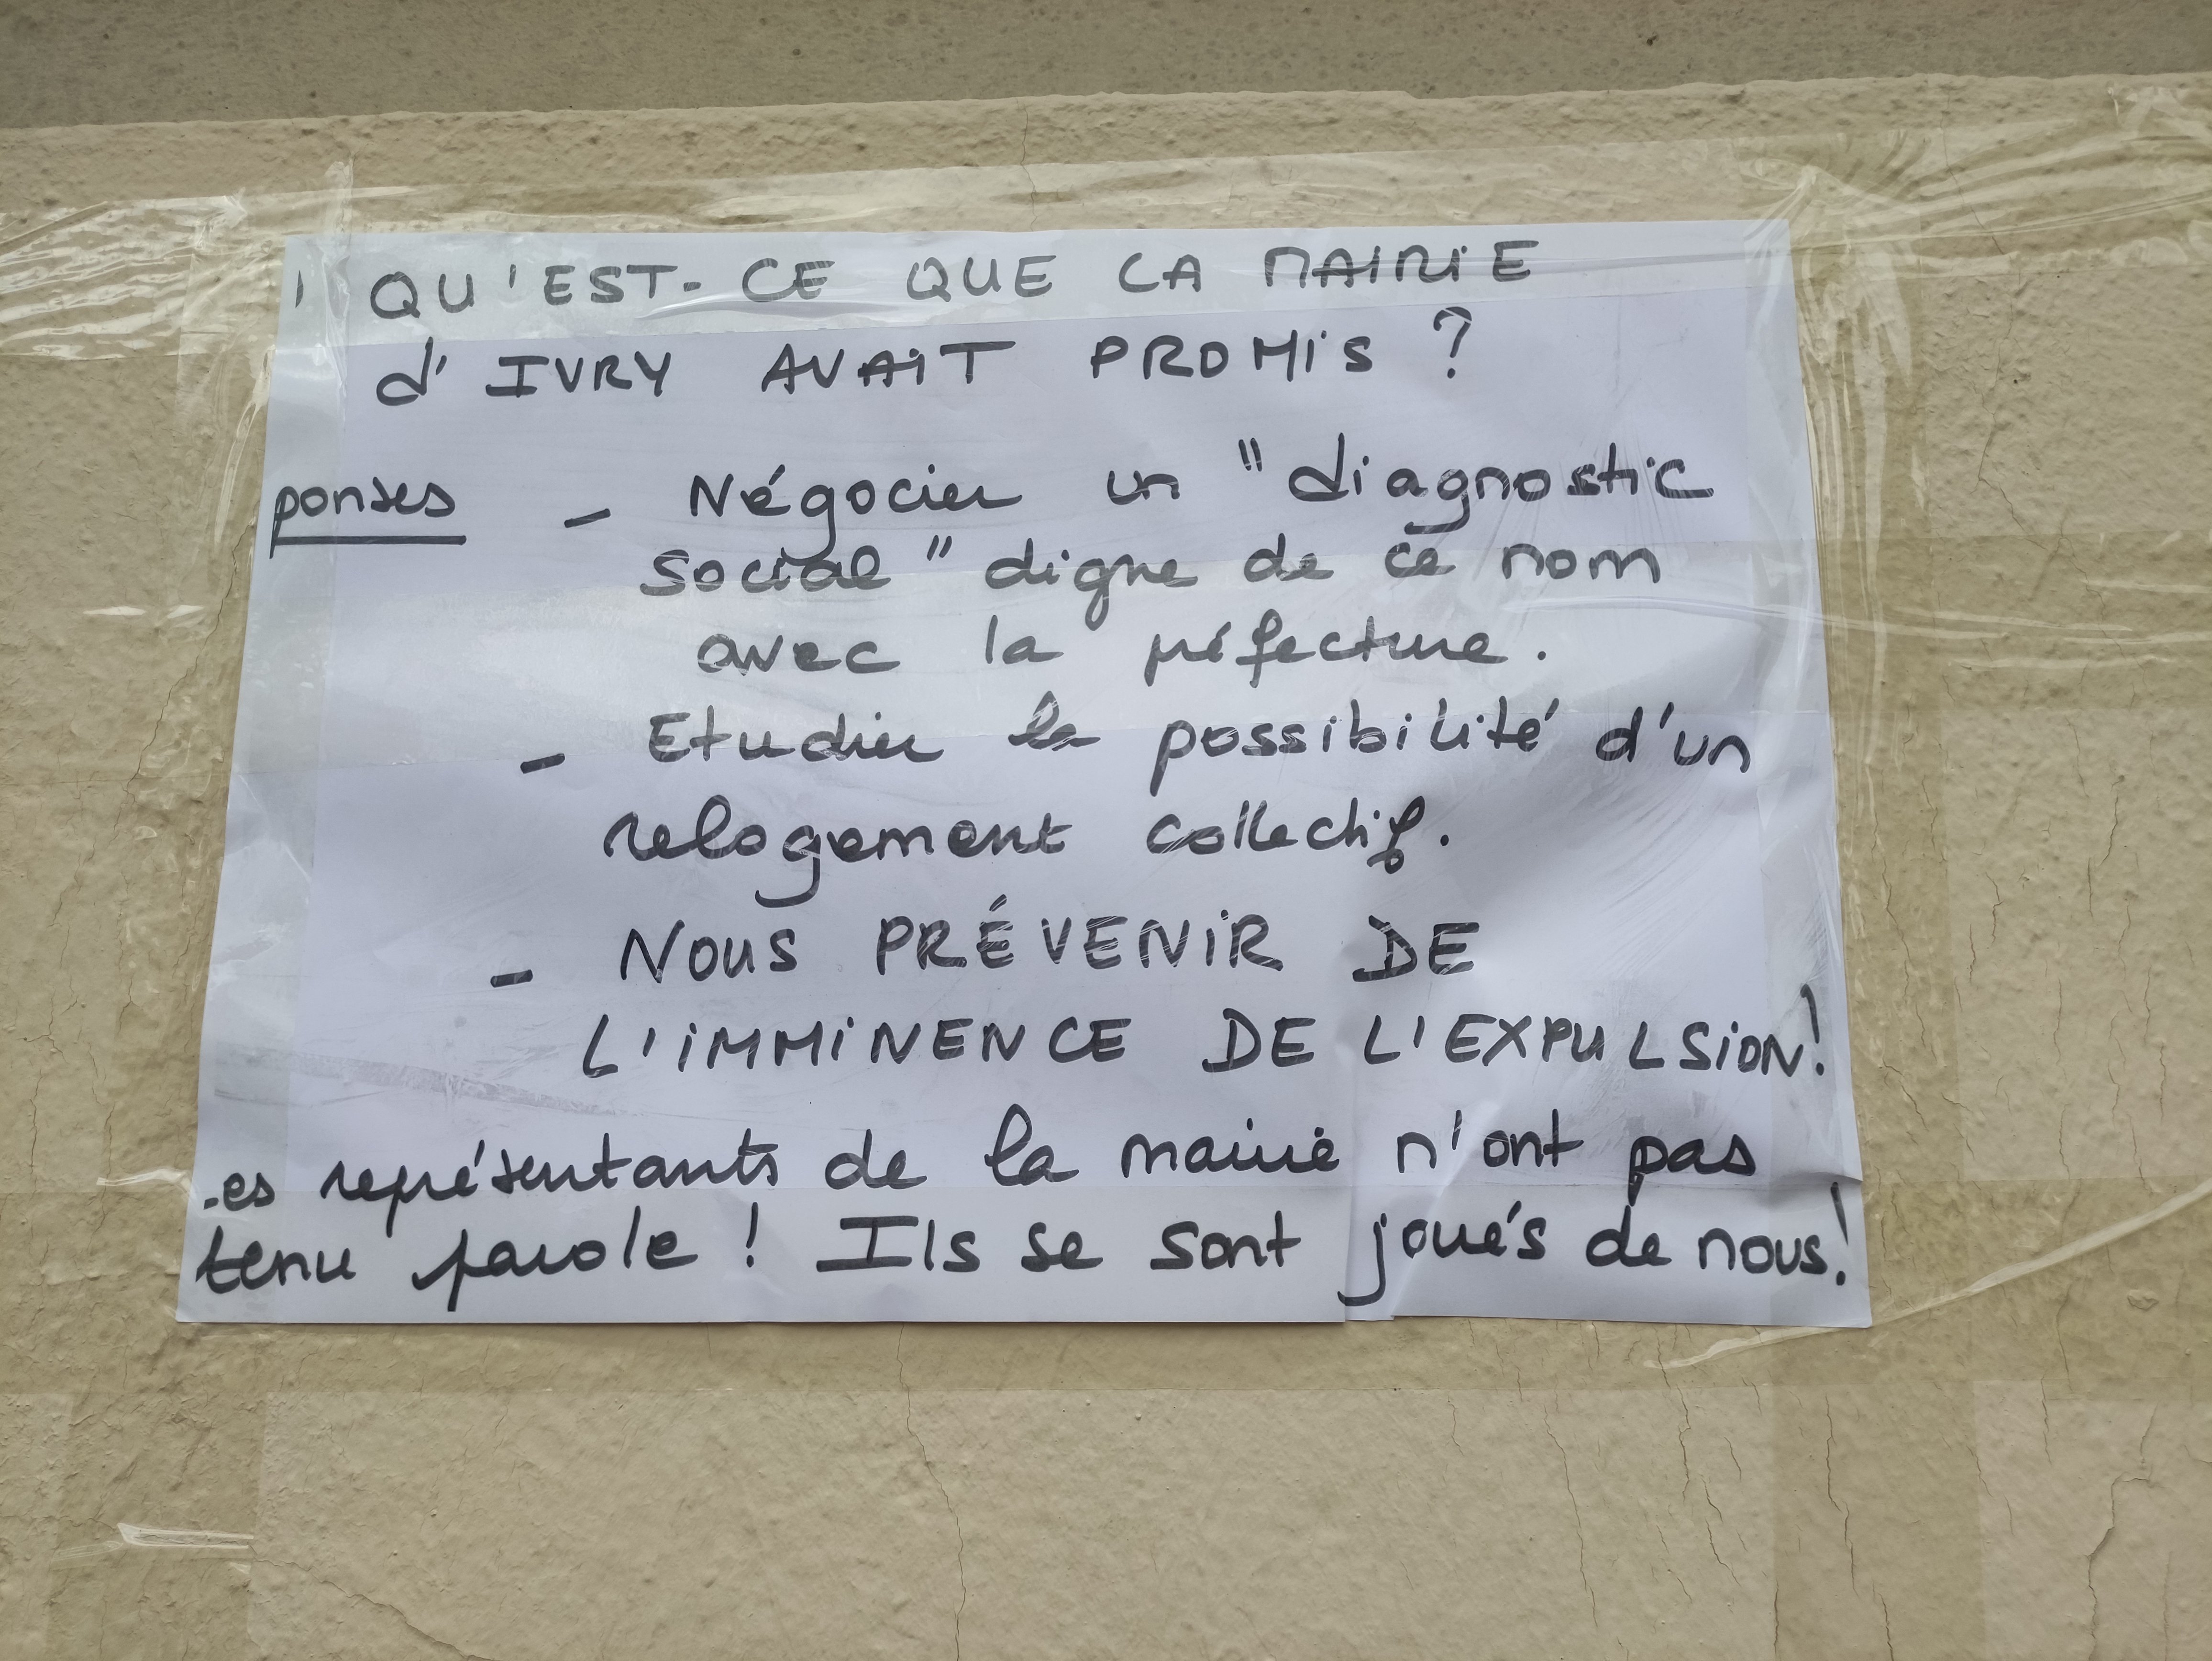 QU'EST-CE QUE LA MAIRIE
d'IVRY AVAIT PROMIS ?
ponses - Négocier un "diagnostic
social" digne de ce nom
avec la préfecture.
- Etudier la possibilité d'un
relogement collectif.
- NOUS PRÉVENIR DE
L'IMMINENCE DE L'EXPULSION!
es représentants de la mairie n'ont pas
tenu parole ! Ils se sont joués de nous!